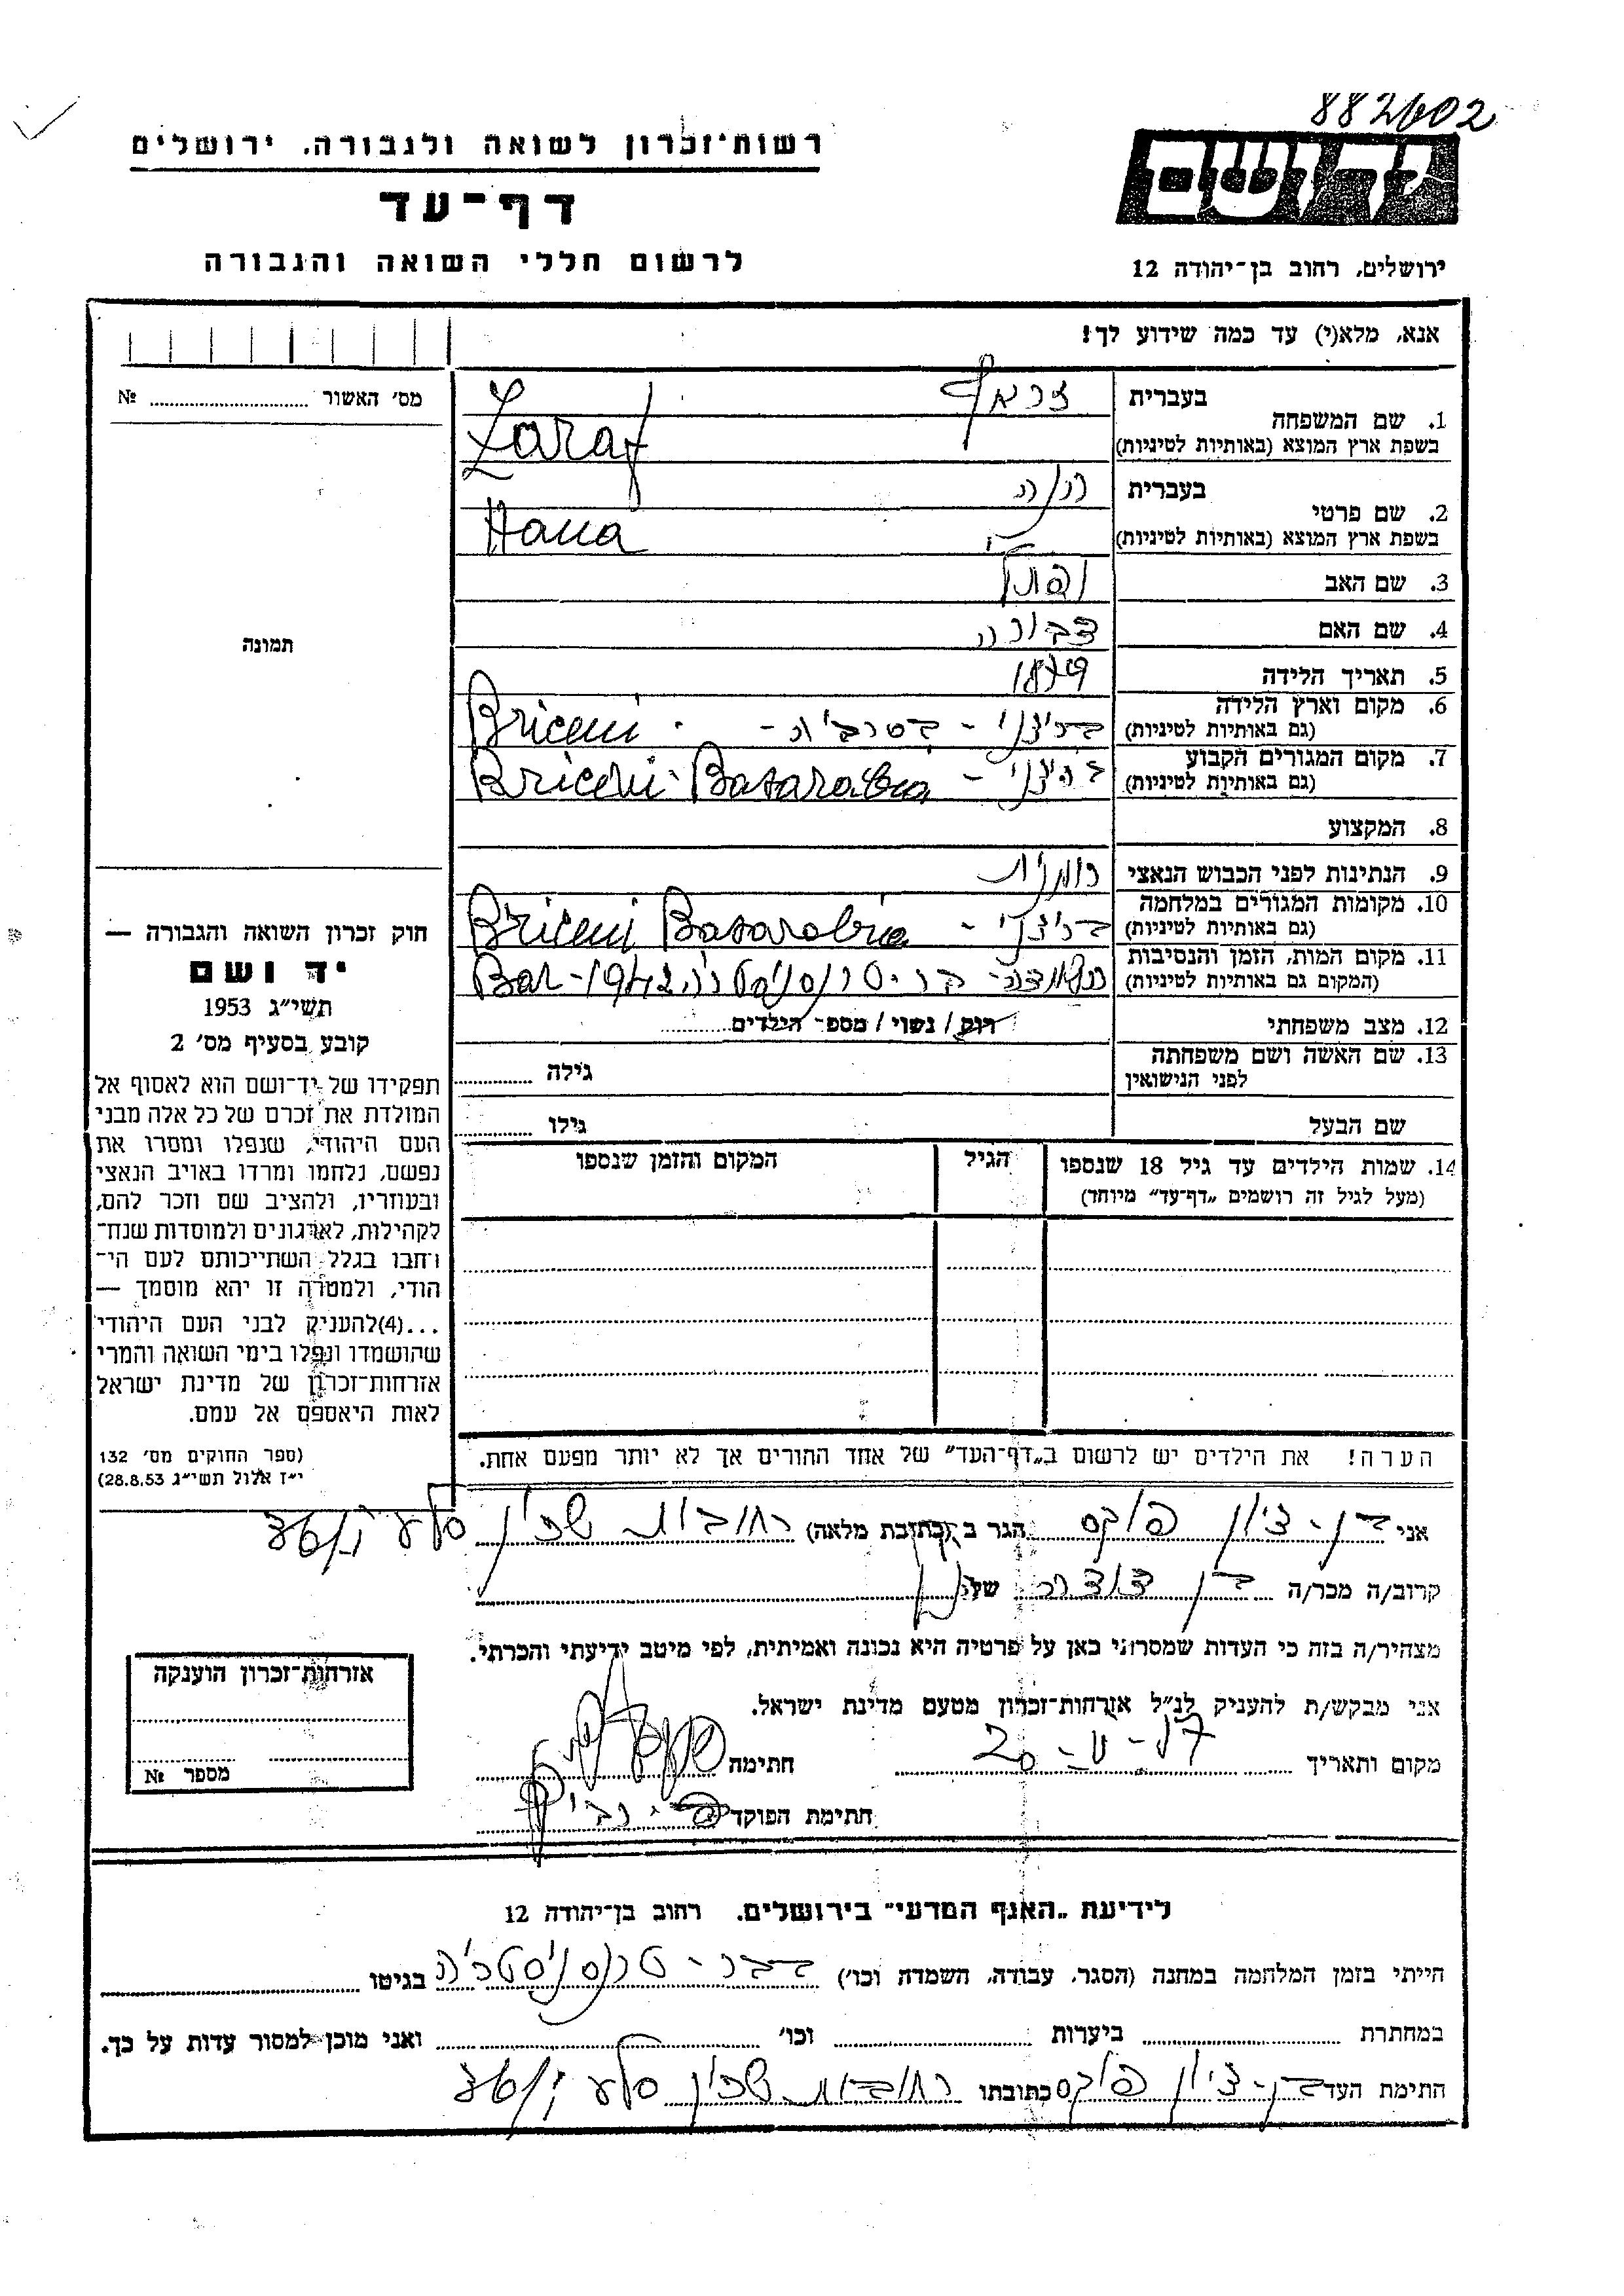 882602
רשות־זכרון לשואה ולגבורה, ירושלים
יד ושם
דף־עד
לרשום חללי השואה והגבורה
ירושלים, רחוב בן־יהודה 12
אנא, מלא(י) עד כמה שידוע לך!
מס׳ האשור ........ №
1. שם המשפחה
בעברית זראף
בשפת ארץ המוצא (באותיות לטיניות) Zaraf
2. שם פרטי
בעברית חנה
בשפת ארץ המוצא (באותיות לטיניות) Hana
3. שם האב נפתלי
4. שם האם דבורה
5. תאריך הלידה 1879
6. מקום וארץ הלידה
(גם באותיות לטיניות) בריצ׳ני - בסרביה - Briceni
7. מקום המגורים הקבוע
(גם באותיות לטיניות) בריצ׳ני - Briceni-Basarabia
8. המקצוע
9. הנתינות לפני הכבוש הנאצי רומנית
10. מקומות המגורים במלחמה
(גם באותיות לטיניות) בריצ׳ני - Briceni Basarabia
11. מקום המות, הזמן והנסיבות
(המקום גם באותיות לטיניות) בר - טרנסניסטריה 1942 - Bar
12. מצב משפחתי רוק / נשוי / מספר הילדים
13. שם האשה ושם משפחתה
לפני הנישואין
גילה
שם הבעל
גילו
14. שמות הילדים עד גיל 18 שנספו
(מעל לגיל זה רושמים „דף־עד״ מיוחד)
הגיל
המקום והזמן שנספו
הערה! את הילדים יש לרשום ב„דף־העד״ של אחד ההורים אך לא יותר מפעם אחת.
תמונה
חוק זכרון השואה והגבורה —
יד ושם
תשי״ג 1953
קובע בסעיף מס׳ 2
תפקידו של יד־ושם הוא לאסוף אל
המולדת את זכרם של כל אלה מבני
העם היהודי, שנפלו ומסרו את
נפשם, נלחמו ומרדו באויב הנאצי
ובעוזריו, ולהציב שם וזכר להם,
לקהילות, לארגונים ולמוסדות שנח־
רחבו בגלל השתייכותם לעם הי־
הודי, ולמטרה זו יהא מוסמך —
...(4)להעניק לבני העם היהודי
שהושמדו ונפלו בימי השואה והמרי
אזרחות־זכרון של מדינת ישראל
לאות היאספם אל עמם.
(ספר החוקים מס׳ 132
י״ז אלול תשי״ג 28.8.53)
אני בן-ציון פוקס הגר ב (כתובת מלאה) רחובות שכון סלע
קרוב/ה מכר/ה בן דודה של
מצהיר/ה בזה כי העדות שמסרתי כאן על פרטיה היא נכונה ואמיתית, לפי מיטב ידיעתי והכרתי.
אני מבקש/ת להעניק לנ״ל אזרחות־זכרון מטעם מדינת ישראל.
מקום ותאריך
חתימה
חתימת הפוקד
אזרחות־זכרון הוענקה
מספר №
לידיעת „האגף המדעי״ בירושלים, רחוב בן־יהודה 12
הייתי בזמן המלחמה במחנה (הסגר, עבודה, השמדה וכו׳) בבר - טרנסניסטריה בגיטו
במחתרת ביערות וכו׳ ואני מוכן למסור עדות על כך.
חתימת העד בן-ציון פוקס כתובתו רחובות שכון סלע